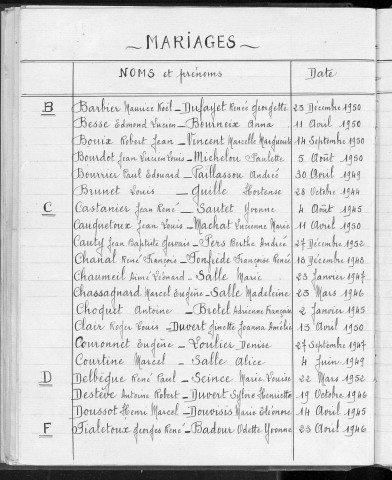 MARIAGES
NOMS et prénoms Date
B Barbier Maurice Noël _ Dufayet Renée Georgette 23 Décembre 1950
Besse Edmond Lucien _ Bourneix Anna 11 Avril 1950
Bouix Robert Jean _ Vincent Marcelle Marguerite 14 Septembre 1950
Bourdot Jean Lucien Louis _ Michelou Paulette 5 Août 1950
Bourrier Paul Edouard _ Paillasson André 30 Avril 1949
Brunet Louis _ Guille Hortense 28 Octobre 1944
C Castanier Jean René _ Sautet Yvonne 4 Août 1945
Cauquetoux Jean Louis _ Machat Lucienne Marie 11 Avril 1950
Cauty Jean Baptiste Gervais _ Pers Berthe Andrée 27 Décembre 1952
Chanal René François _ Fonfrède Françoise Renée 18 Décembre 1945
Chaumeil Aimé Léonard _ Salle Marie 23 Janvier 1947
Chassagnard Marcel Eugène _ Salle Madeleine 23 Mars 1946
Choquet Antoine _ Bretel Adrienne Françoise 2 Janvier 1945
Clair Roger Louis _ Duvert Ginette Jeanne Amélie 13 Avril 1950
Couronnet Eugène _ Loulier Denise 27 Septembre 1947
Courtine Marcel _ Salle Alice 4 Juin 1949
D Delbègue René Paul _ Seince Marie Louise 22 Mars 1952
Destève Antoine Robert _ Duvert Sylvie Henriette 19 Octobre 1946
Doussot Henri Marcel _ Douvisis Marie Eléonore 14 Avril 1945
F Fialetoux Georges René _ Badour Odette Yvonne 23 Avril 1946